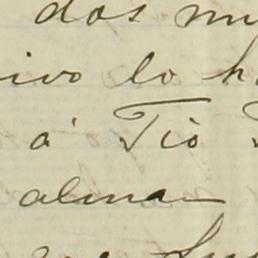 dos mu
ivo lo h
á Tio
alman